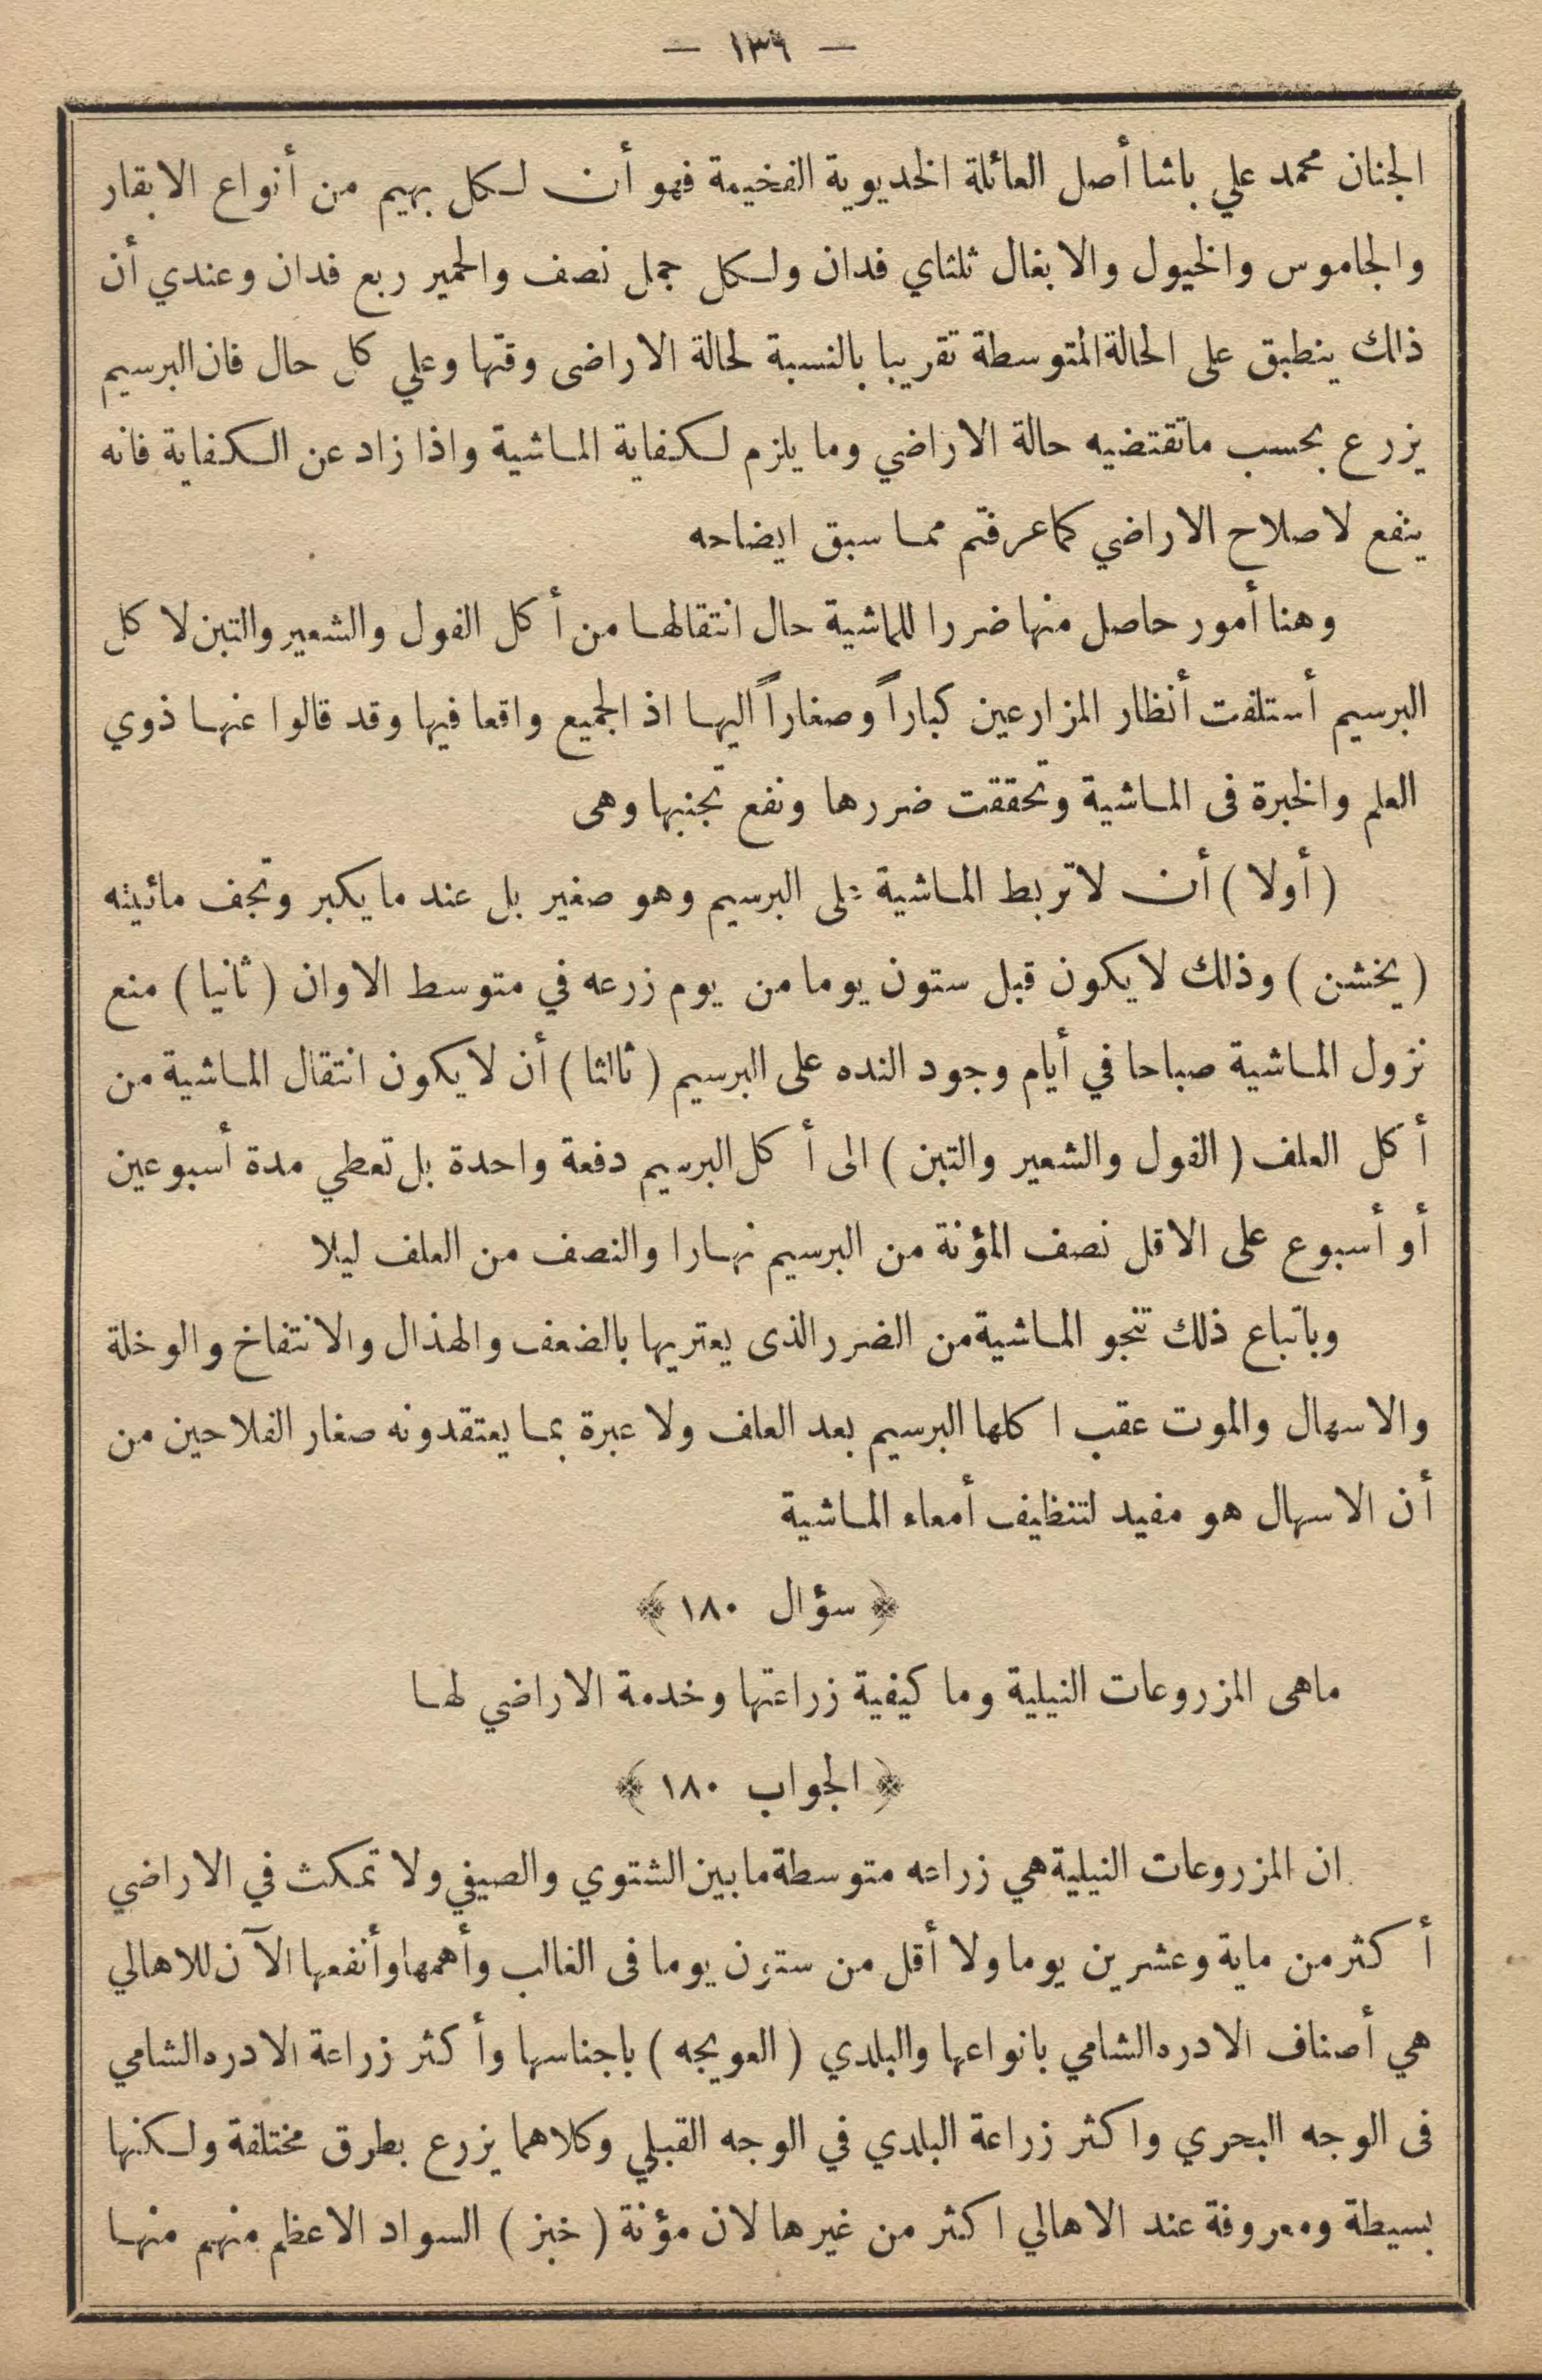 — ١٣٦ —
الجنان محمد علي باشا أصل العائلة الخديوية الفخيمة فهو أن لكل بهيم من أنواع الابقار
والجاموس والخيول والابغال ثلثاي فدان ولكل جمل نصف والحمير ربع فدان وعندي أن
ذالك ينطبق على الحالة المتوسطة تقريبا بالنسبة لحالة الاراضى وقتها وعلي كل حال فان البرسيم
يزرع بحسب ماتقتضيه حالة الاراضي وما يلزم لكفاية الماشية واذا زاد عن الكفاية فانه
ينفع لاصلاح الاراضي كما عرفتم مما سبق ايضاحه
وهنا أمور حاصل منها ضررا للماشية حال انتقالها من أكل الفول والشعير والتبن لاكل
البرسيم أستلفت أنظار المزارعين كباراً وصغاراً اليها اذ الجميع واقعا فيها وقد قالوا عنها ذوي
العلم والخبرة فى الماشية وتحققت ضررها ونفع تجنبها وهى
(أولا) أن لاتربط الماشية على البرسيم وهو صغير بل عند مايكبر وتجف مائيته
(يخشن) وذلك لايكون قبل ستون يوما من يوم زرعه في متوسط الاوان (ثانيا) منع
نزول الماشية صباحا في أيام وجود النده على البرسيم (ثالثا) أن لايكون انتقال الماشية من
أكل العلف (الفول والشعير والتبن) الى أكل البرسيم دفعة واحدة بل تعطي مدة أسبوعين
أو أسبوع على الاقل نصف المؤنة من البرسيم نهارا والنصف من العلف ليلا
وباتباع ذلك تنجو الماشية من الضرر الذى يعتريها بالضعف والهذال والانتفاخ والوخلة
والاسهال والموت عقب اكلها البرسيم بعد العلف ولا عبرة بما يعتقدونه صغار الفلاحين من
أن الاسهال هو مفيد لتنظيف أمعاء الماشية
﴿ سؤال ١٨٠ ﴾
ماهى المزروعات النيلية وما كيفية زراعتها وخدمة الاراضي لها
﴿ الجواب ١٨٠ ﴾
ان المزروعات النيلية هي زراعه متوسطة مابين الشتوي والصيفي ولا تمكث في الاراضي
أكثر من ماية وعشرين يوما ولا أقل من ستون يوما فى الغالب وأهمها وأنفعها الآن للاهالي
هي أصناف الادره الشامي بانواعها والبلدي (العويجه) باجناسها وأكثر زراعة الادره الشامي
فى الوجه البحري واكثر زراعة البلدي في الوجه القبلي وكلاهما يزرع بطرق مختلفة ولكنها
بسيطة ومعروفة عند الاهالي اكثر من غيرها لان مؤنة (خبز) السواد الاعظم منهم منها